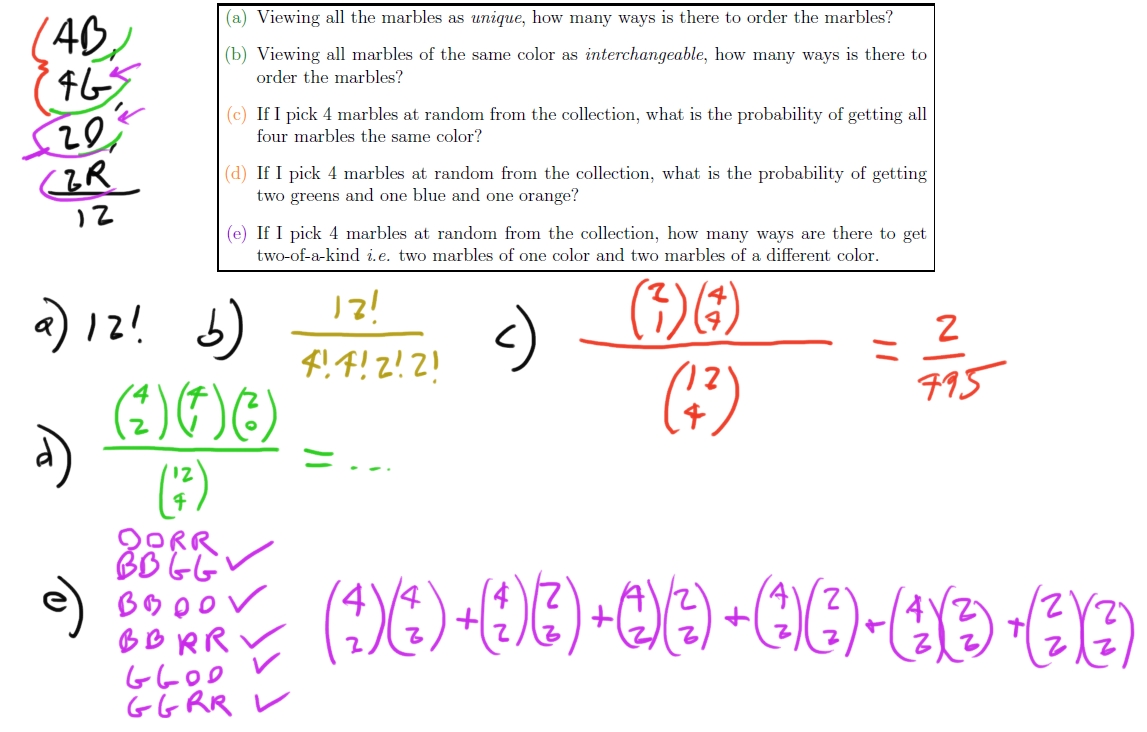 4B,
4G,
2O,
2R
12
(a) Viewing all the marbles as unique, how many ways is there to order the marbles?
(b) Viewing all marbles of the same color as interchangeable, how many ways is there to
order the marbles?
(c) If I pick 4 marbles at random from the collection, what is the probability of getting all
four marbles the same color?
(d) If I pick 4 marbles at random from the collection, what is the probability of getting
two greens and one blue and one orange?
(e) If I pick 4 marbles at random from the collection, how many ways are there to get
two-of-a-kind i.e. two marbles of one color and two marbles of a different color.
a) 12!
b) 12!
4! 4! 2! 2!
c) (2 1)(4 4)
(12 4)
= 2
495
d) (4 2)(4 1)(2 0)
(12 4)
= ...
e)
OORR
BBGG ✓
BBOO ✓
BBRR ✓
GGOO ✓
GGRR ✓
(4 2)(4 2) + (4 2)(2 2) + (4 2)(2 2) + (4 2)(2 2) + (4 2)(2 2) + (2 2)(2 2)